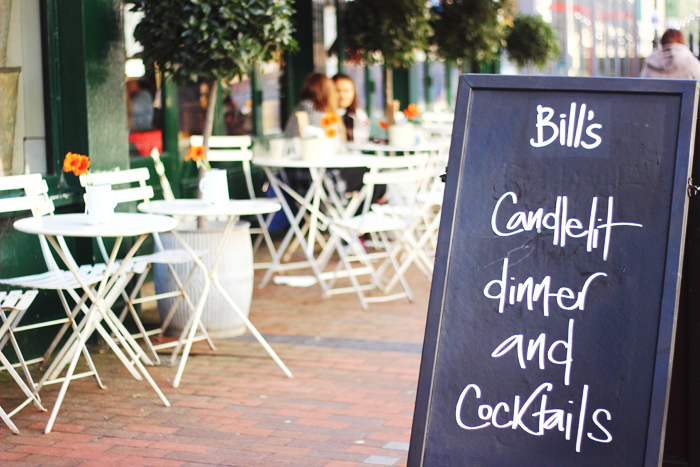 Bill's
Candlelit
dinner
and
Cocktails